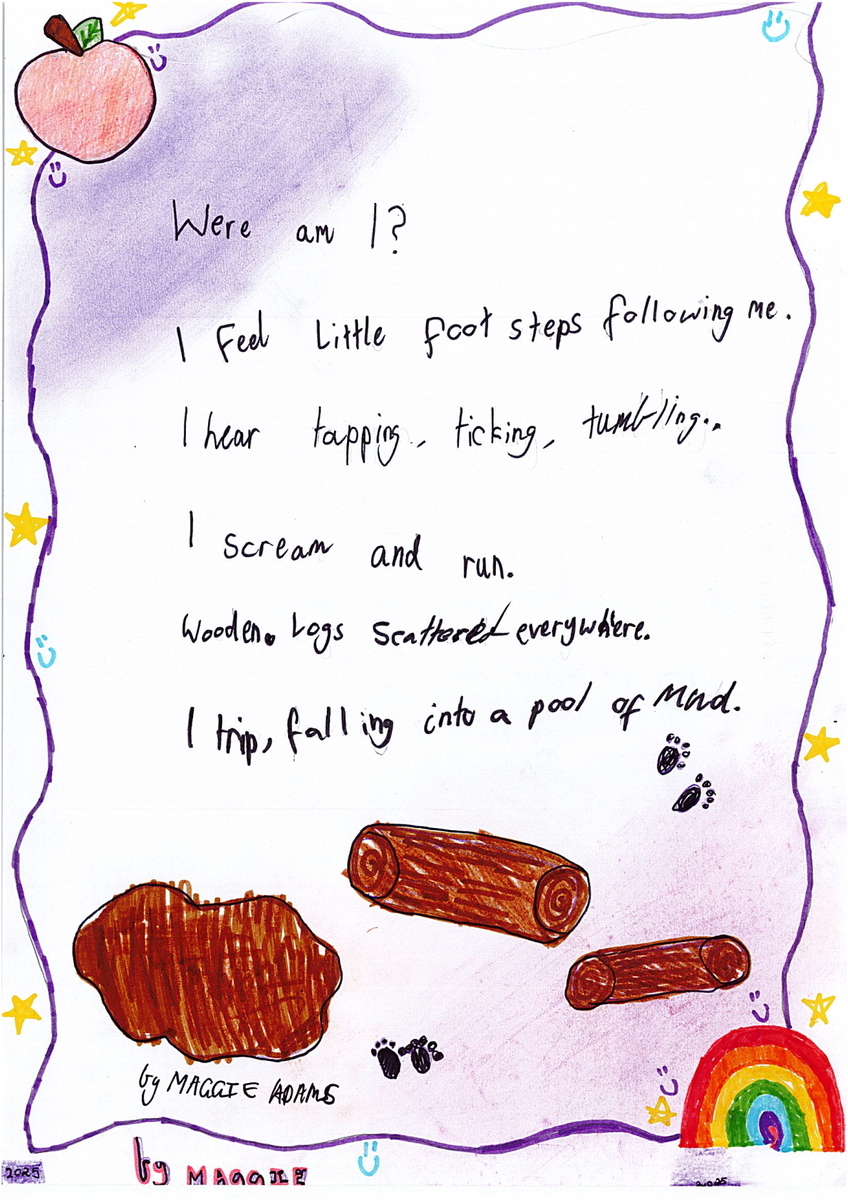 Were am I?
I Feel Little foot steps following me.
I hear tapping, ticking, tumbling..
I scream and run.
Wooden. Logs scattered everywhere.
I trip, falling into a pool of Mud.
by MAGGIE ADAMS
by MAGGIE
2025
2025